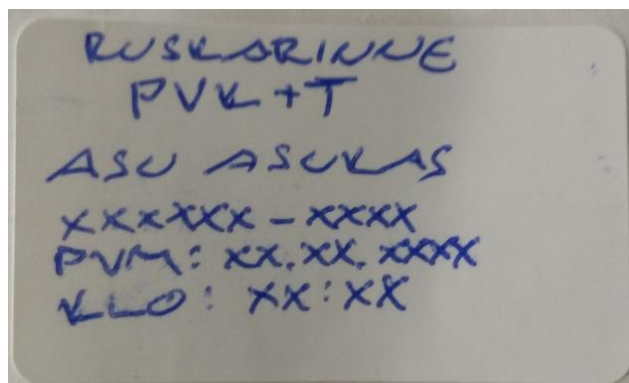 RUSKARINNE
PVK+T
ASU ASUKAS
XXXXXX-XXXX
PVM: XX.XX.XXXX
KLO: XX:XX